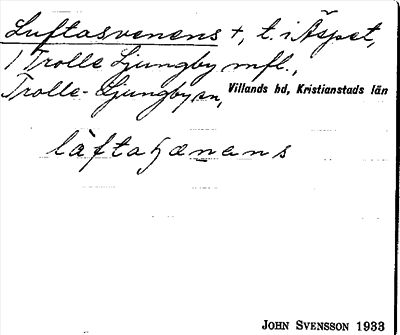 Luftasvenens +, t. i Äspet,
1 Trolle Ljungby mfl.,
Trolle-Ljungby sn, Villands hd, Kristianstads län
làftahænans
JOHN SVENSSON 1933